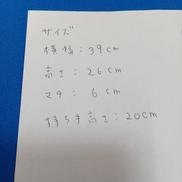 サイズ
横幅：39cm
高さ：26cm
マチ：6cm
持ち手高さ：20cm